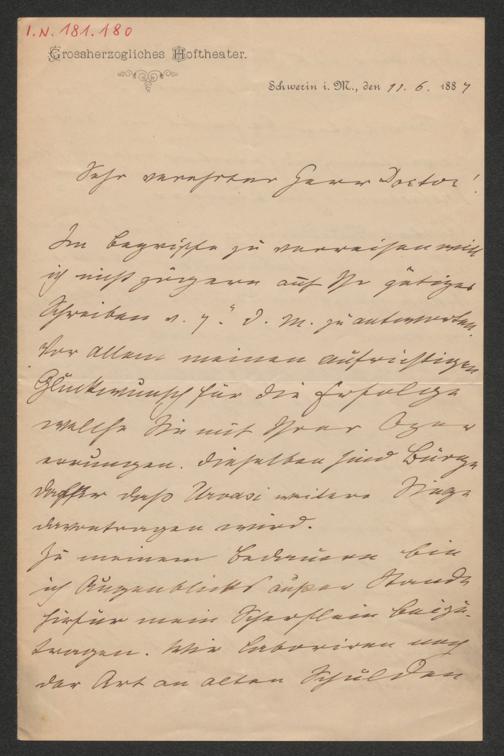 I.N. 181.180
Grossherzogliches Hoftheater.
Schwerin i. M., den 11. 6. 1887
Sehr verehrter Herr Doctor!
Im Begriffe zu verreisen will
ich nicht zögern auf Ihr gütiges
Schreiben v. 7. d. M. zu antworten.
Vor allem meinen aufrichtigen
Glückwunsch für die Erfolge
welche Sie mit Ihrer Oper
errungen. Dieselben sind Bürge
dafür daß Urvasi weitere Siege
davontragen wird.
Zu meinem Bedauern bin
ich Augenblicks außer Stande
hierfür mein Scherflein beizu-
tragen. Wir laboriren nach
der Art an alten Schulden